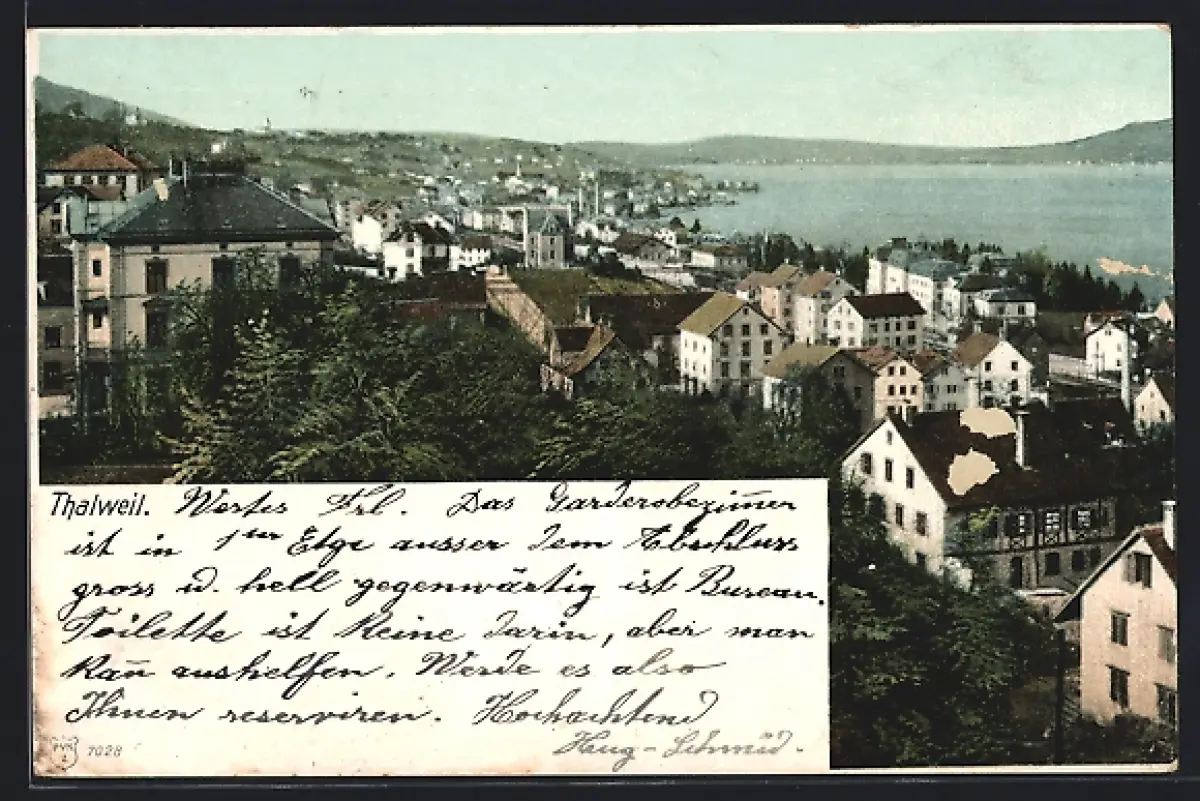 Thalweil. Wertes Frl. Das Garderobezim̄er
ist in 1ter Etge ausser dem Abschluss
gross u. hell gegenwärtig ist Bureau.
Toilette ist keine darin, aber man
kan̄ aushelfen. Werde es also
Ihnen reserviren. Hochachtend
Hug-Schmid.
7028